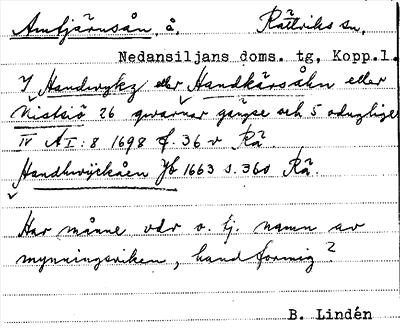 Amtjärnsån, å. Rättviks sn,
Nedansiljans doms. tg, Kopp.l.
I Handwykz eler Handkärsåhn eller
Kistsiö 26 qwarnar gånse och 5 odugliga
IV AI:8 1698 f. 36 v Rä.
Handhwÿckåen Jb 1663 s. 360 Rä.
Har månne vdr o. tj. namn av
mynningsviken, handformig?
B. Lindén